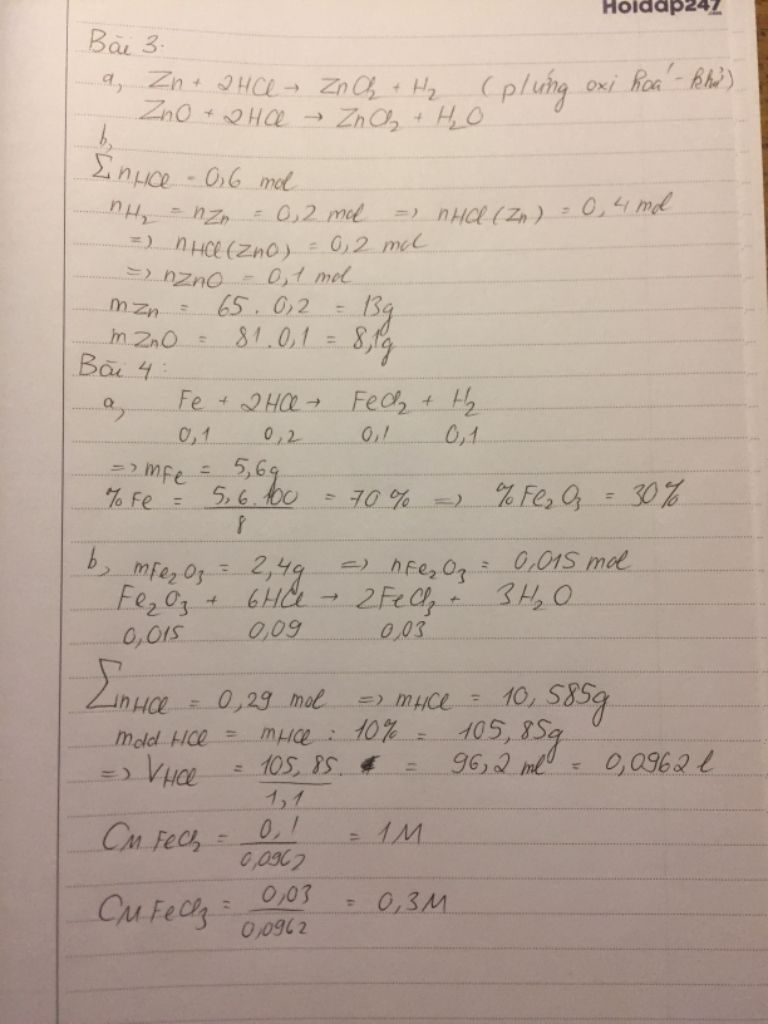 Hoidap247
Bài 3:
a, Zn + 2HCl → ZnCl₂ + H₂ (p/ứng oxi hoá - khử)
ZnO + 2HCl → ZnCl₂ + H₂O
b,
∑nHCl = 0,6 mol
nH₂ = nZn = 0,2 mol => nHCl(Zn) = 0,4 mol
=> nHCl(ZnO) = 0,2 mol
=> nZnO = 0,1 mol
mZn = 65.0,2 = 13g
mZnO = 81.0,1 = 8,1g
Bài 4:
a, Fe + 2HCl → FeCl₂ + H₂
0,1 0,2 0,1 0,1
=> mFe = 5,6g
%Fe = 5,6.100 = 70% => %Fe₂O₃ = 30%
8
b, mFe₂O₃ = 2,4g => nFe₂O₃ = 0,015 mol
Fe₂O₃ + 6HCl → 2FeCl₃ + 3H₂O
0,015 0,09 0,03
∑nHCl = 0,29 mol => mHCl = 10,585g
mdd HCl = mHCl : 10% = 105,85g
=> VHCl = 105,85. = 96,2 ml = 0,0962 l
1,1
CM FeCl₂ = 0,1 = 1M
0,0962
CM FeCl₃ = 0,03 = 0,3M
0,0962